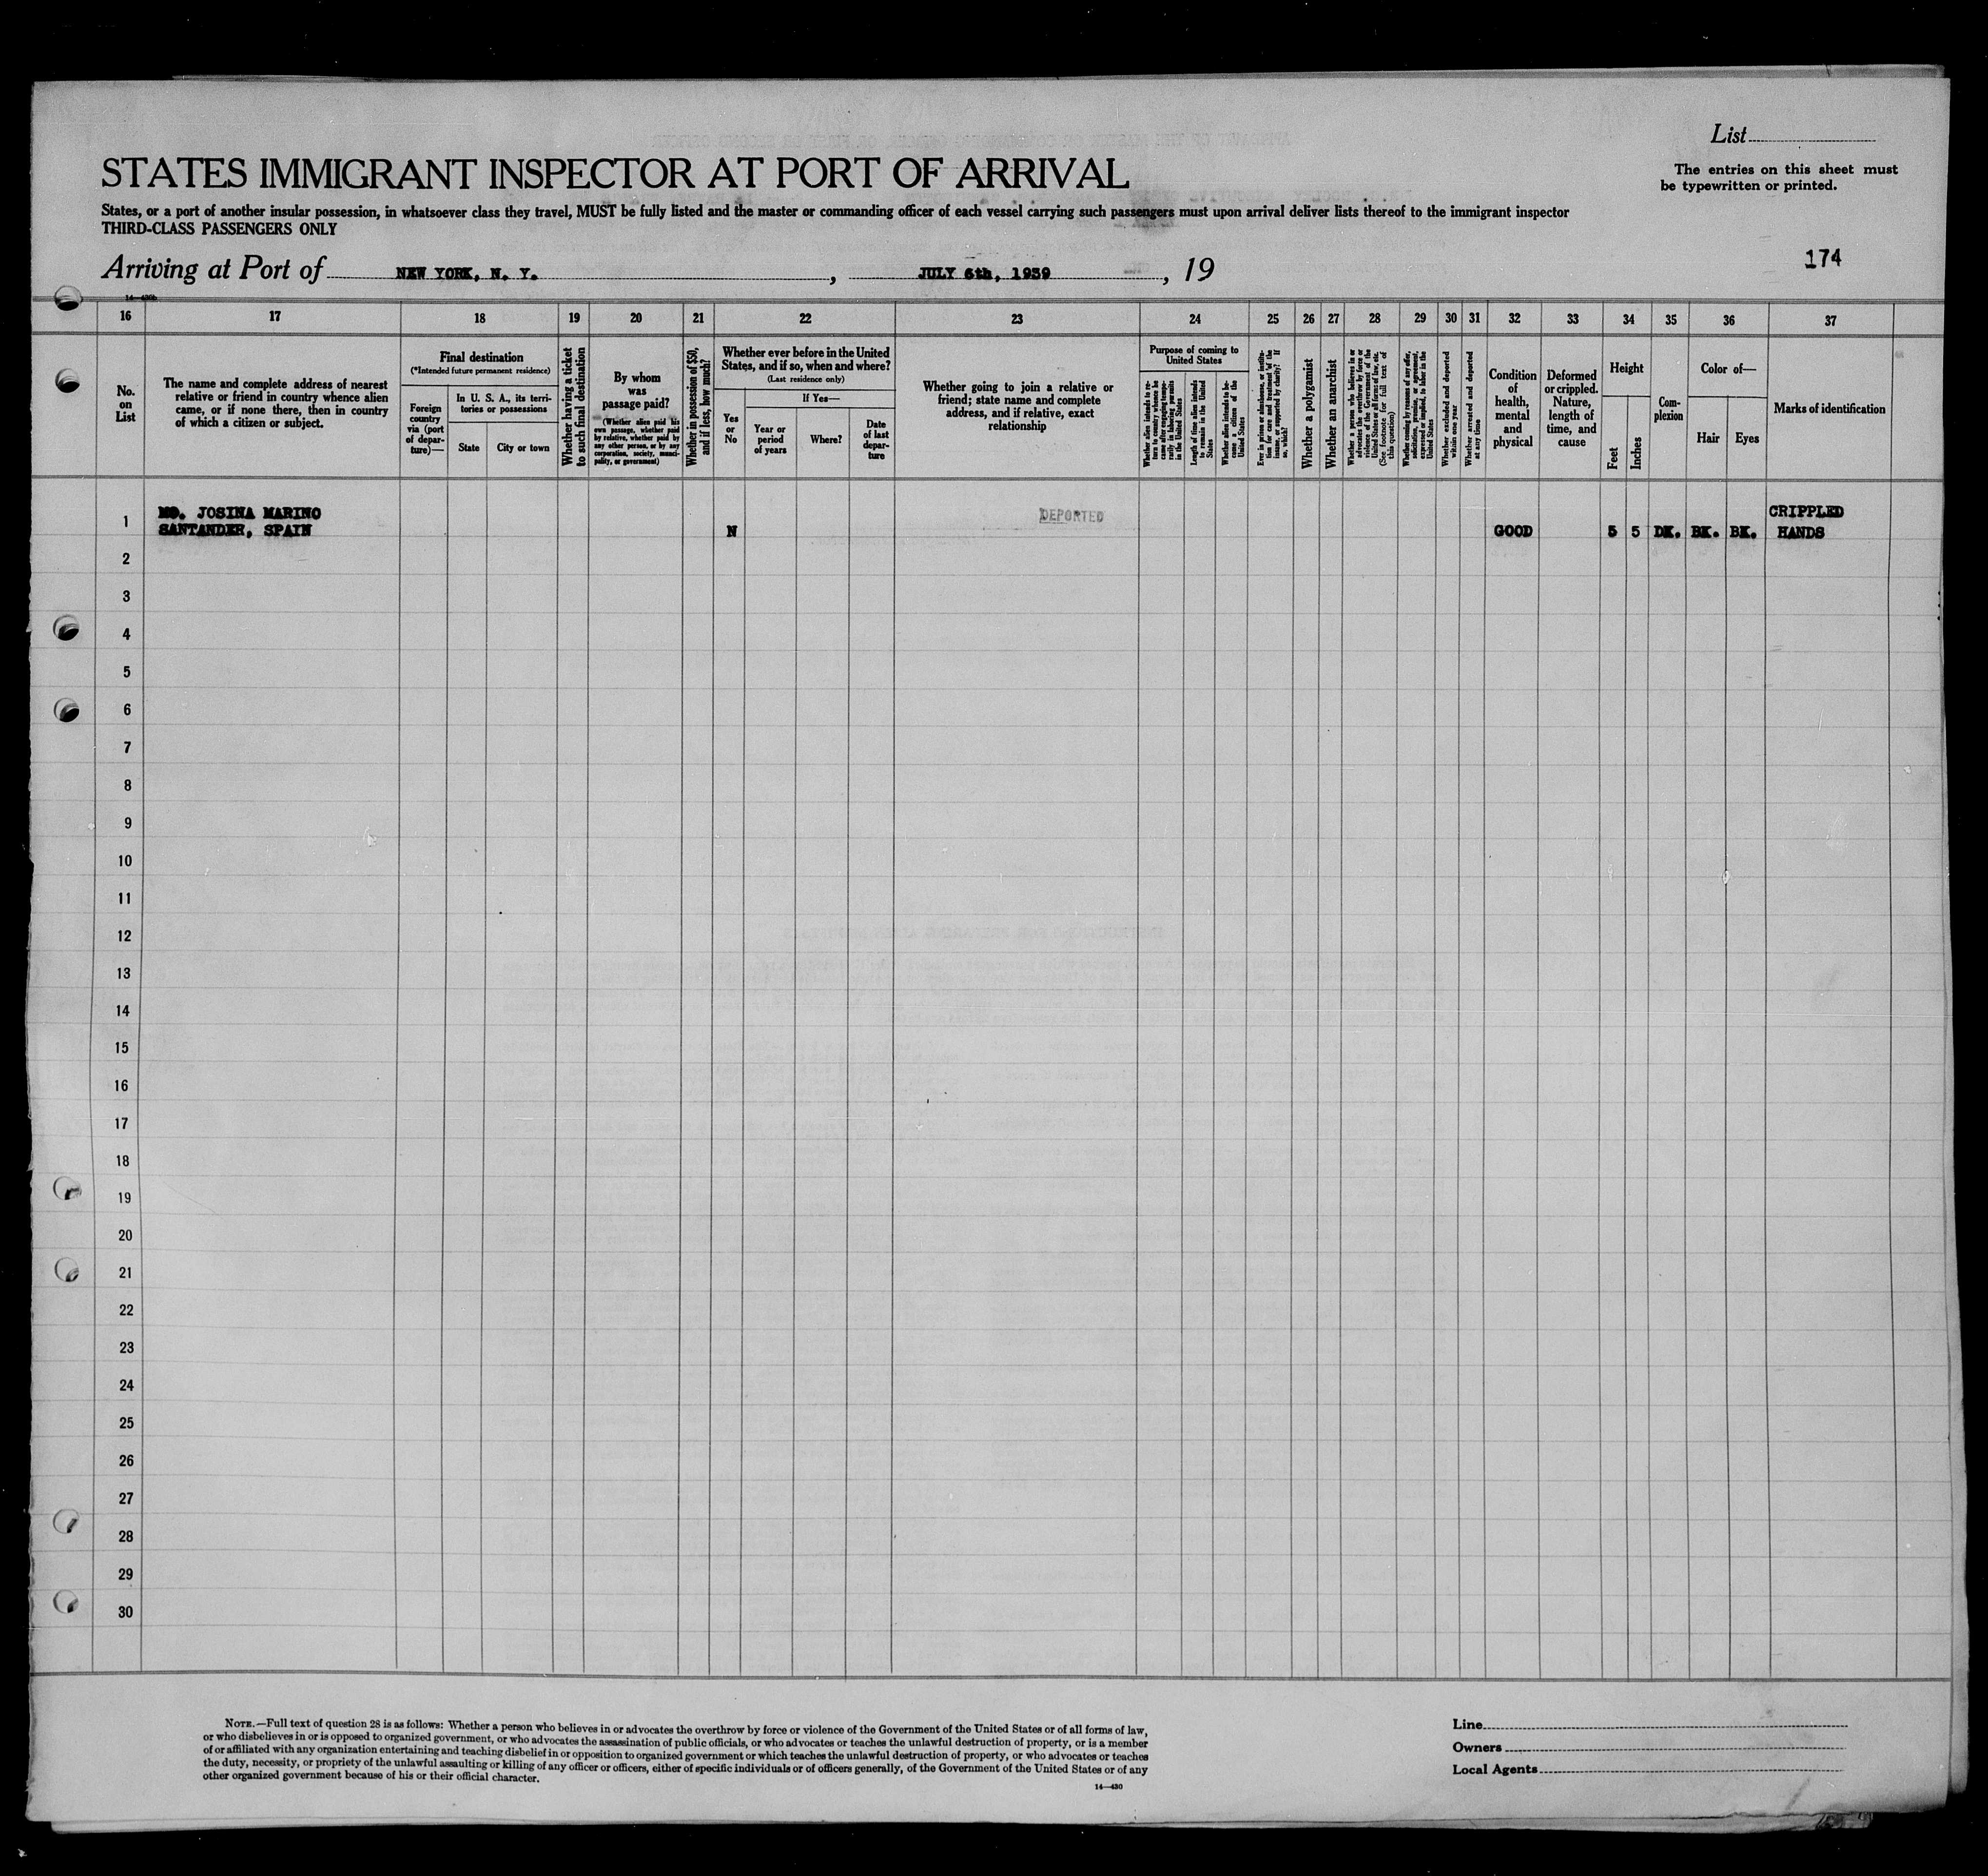 List
STATES IMMIGRANT INSPECTOR AT PORT OF ARRIVAL
The entries on this sheet must
be typewritten or printed.
States, or a port of another insular possession, in whatsoever class they travel, MUST be fully listed and the master or commanding officer of each vessel carrying such passengers must upon arrival deliver lists thereof to the immigrant inspector
THIRD-CLASS PASSENGERS ONLY
174
Arriving at Port of NEW YORK, N. Y., JULY 6th, 1939, 19
16 17 18 19 20 21 22 23 24 25 26 27 28 29 30 31 32 33 34 35 36 37
No.
on
List
The name and complete address of nearest
relative or friend in country whence alien
came, or if none there, then in country
of which a citizen or subject.
Final destination
(*Intended future permanent residence)
Foreign
country
via (port
of depar-
ture)—
In U. S. A., its terri-
tories or possessions
State
City or town
Whether having a ticket
to such final destination
By whom
was
passage paid?
(Whether alien paid his
own passage, whether paid
by relative, whether paid by
any other person, or by any
corporation, society, munici-
pality, or government)
Whether in possession of $50,
and if less, how much?
Whether ever before in the United
States, and if so, when and where?
(Last residence only)
Yes
or
No
If Yes—
Year or
period
of years
Where?
Date
of last
depar-
ture
Whether going to join a relative or
friend; state name and complete
address, and if relative, exact
relationship
Purpose of coming to
United States
Whether alien intends to re-
turn to country whence he
came after engaging tempo-
rarily in laboring pursuits
in the United States
Length of time alien intends
to remain in the United
States
Whether alien intends to be-
come a citizen of the
United States
Ever in prison or almshouse, or institu-
tion for care and treatment of the
insane, or supported by charity? If
so, which?
Whether a polygamist
Whether an anarchist
Whether a person who believes in or
advocates the overthrow by force or
violence of the Government of the
United States or all forms of law, etc.
(See footnote for full text of
this question)
Whether coming by reasons of any offer,
solicitation, promise, or agreement,
expressed or implied, to labor in the
United States
Whether excluded and deported
within one year
Whether arrested and deported
at any time
Condition
of
health,
mental
and
physical
Deformed
or crippled.
Nature,
length of
time, and
cause
Height
Feet
Inches
Com-
plexion
Color of—
Hair
Eyes
Marks of identification
1 JOSINA MARINO DEPORTED CRIPPLED
SANTANDER, SPAIN N GOOD 5 5 DK. BK. BK. HANDS
2
3
4
5
6
7
8
9
10
11
12
13
14
15
16
17
18
19
20
21
22
23
24
25
26
27
28
29
30
NOTE.—Full text of question 28 is as follows: Whether a person who believes in or advocates the overthrow by force or violence of the Government of the United States or of all forms of law,
or who disbelieves in or is opposed to organized government, or who advocates the assassination of public officials, or who advocates or teaches the unlawful destruction of property, or is a member
of or affiliated with any organization entertaining and teaching disbelief in or opposition to organized government or which teaches the unlawful destruction of property, or who advocates or teaches
the duty, necessity, or propriety of the unlawful assaulting or killing of any officer or officers, either of specific individuals or of officers generally, of the Government of the United States or of any
other organized government because of his or their official character.
14—430
Line
Owners
Local Agents